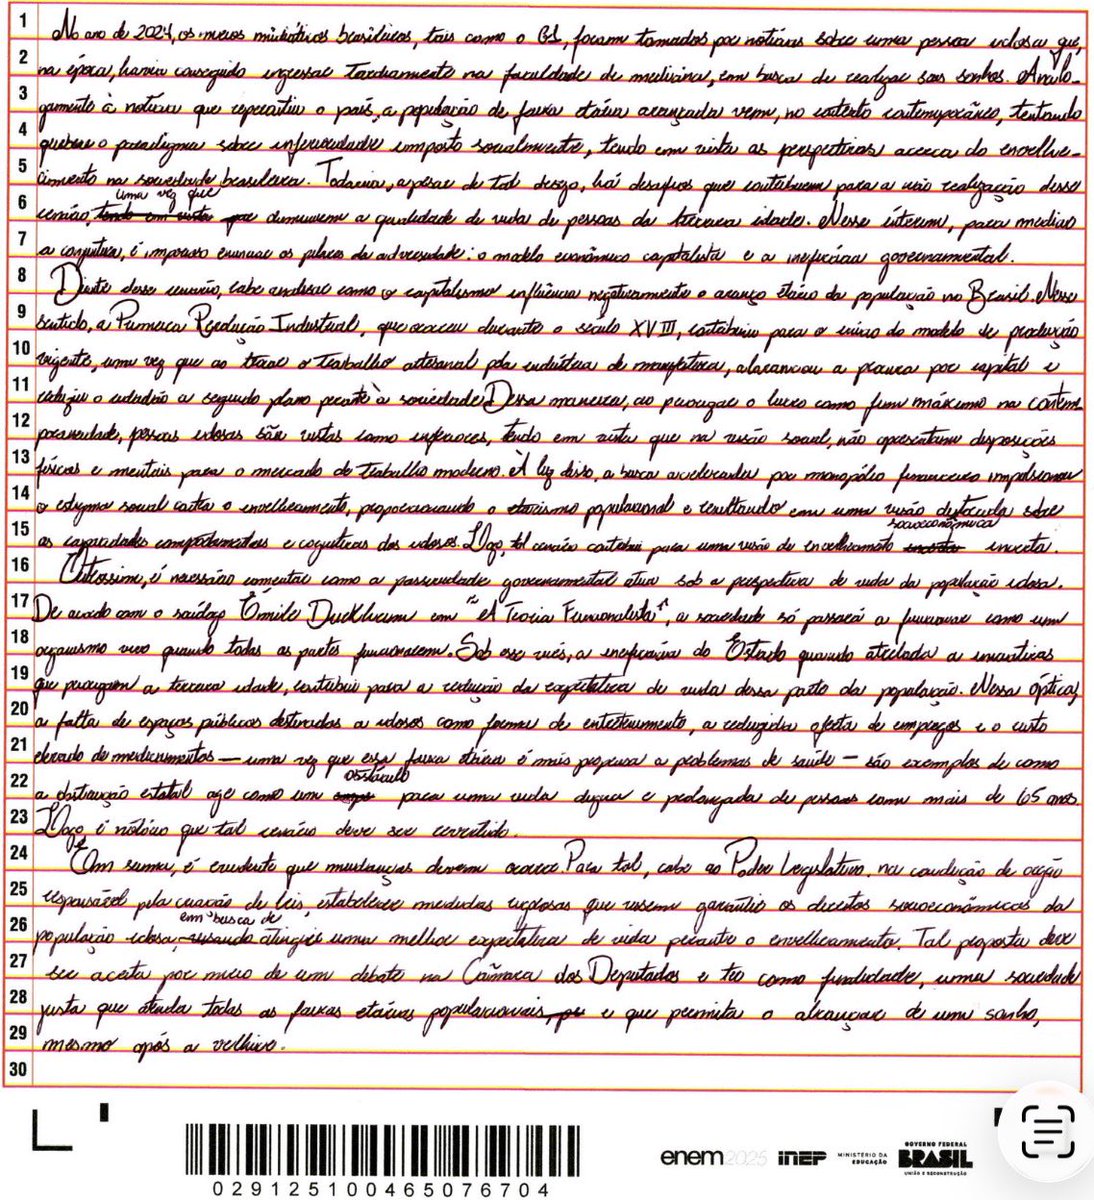 1 No ano de 2024, os meios midiáticos brasileiros, tais como o G1, foram tomados por notícias sobre uma pessoa idosa que,
2 na época, havia conseguido ingressar tardiamente na faculdade de medicina, em busca de realizar seus sonhos. Analo-
3 gamente à notícia que repercutiu o país, a população de faixa etária avançada vem, no contexto contemporâneo, tentando
4 quebrar o paradigma sobre inferioridade imposto socialmente, tendo em vista as perspectivas acerca do envelhe-
5 cimento na sociedade brasileira. Todavia, apesar de tal desejo, há desafios que contribuem para a não realização desse
uma vez que
6 cenário, tendo em vista que diminuem a qualidade de vida de pessoas da terceira idade. Nesse ínterim, para mediar
7 a conjuntura, é imperioso enunciar os pilares da adversidade: o modelo econômico capitalista e a ineficiência governamental.
8 Diante desse cenário, cabe analisar como o capitalismo influência negativamente o avanço etário da população no Brasil. Nesse
9 sentido, a Primeira Revolução Industrial, que ocorreu durante o século XVIII, contribuiu para o início do modelo de produção
10 vigente, uma vez que ao trocar o trabalho artesanal pela indústria de manufatura, alavancou a procura por capital e
11 reduziu o cidadão a segundo plano perante à sociedade. Dessa maneira, ao perpetuar o lucro como fim máximo na contem
12 poraneidade, pessoas idosas são vistas como inferiores, tendo em vista que na visão social, não apresentam disposições
13 físicas e mentais para o mercado de trabalho moderno. À luz disso, a busca acelerada por monopólio financeiro impulsionou
14 o estigma social contra o envelhecimento, proporcionando o etarismo populacional e resultando em uma visão deturpada sobre
socioeconômica
15 as capacidades comportamentais e cognitivas dos idosos. Logo, tal cenário contribui para uma visão de envelhecimento incerta.
16 Outrossim, é necessário comentar como a passividade governamental atua sob a perspectiva de vida da população idosa.
17 De acordo com o sociólogo Émile Durkheim em "A Teoria Funcionalista", a sociedade só passará a funcionar como um
18 organismo vivo quando todas as partes funcionarem. Sob esse viés, a ineficiência do Estado quando atrelada a iniciativas
19 que protegem a terceira idade, contribui para a redução da expectativa de vida dessa parte da população. Nessa óptica,
20 a falta de espaços públicos destinados a idosos como forma de entretenimento, a reduzida oferta de empregos e o custo
21 elevado de medicamentos — uma vez que essa faixa etária é mais propensa a problemas de saúde — são exemplos de como
obstáculo
22 a distração estatal age como um para uma vida digna e prolongada de pessoas com mais de 65 anos.
23 Logo, é notório que tal cenário deve ser revertido.
24 Em suma, é evidente que mudanças devem ocorrer. Para tal, cabe ao Poder Legislativo, na condição de órgão
25 responsável pela criação de leis, estabelecer medidas rigorosas que visem garantir os direitos socioeconômicos da
em busca de
26 população idosa, visando atingir uma melhor expectativa de vida perante o envelhecimento. Tal proposta deve
27 ser aceita por meio de um debate na Câmara dos Deputados e ter como finalidade, uma sociedade
28 justa que atenda todas as faixas etárias populacionais, e que permita o alcançar de um sonho,
29 mesmo após a velhice.
30
02912510046507670 4
enem2025 INEP MINISTÉRIO DA EDUCAÇÃO GOVERNO FEDERAL BRASIL UNIÃO E RECONSTRUÇÃO